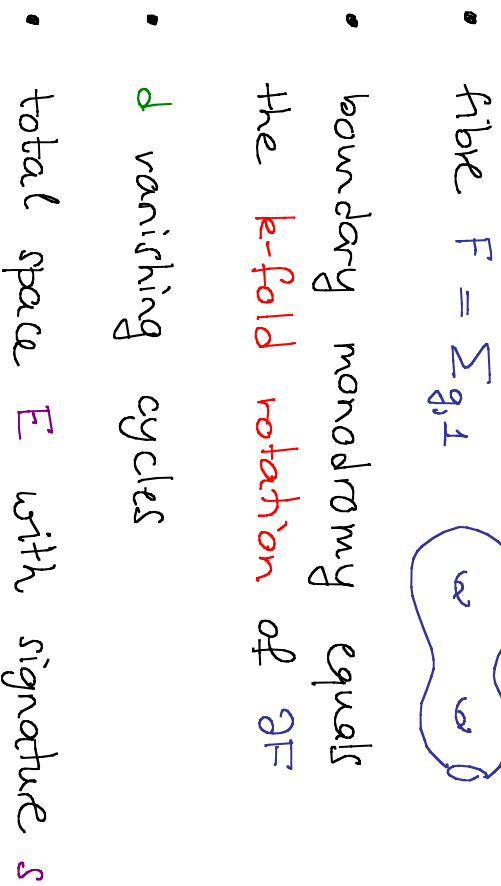 • fibre F = Σg,1
• boundary monodromy equals
the k-fold rotation of ∂F
• d vanishing cycles
• total space E with signature s